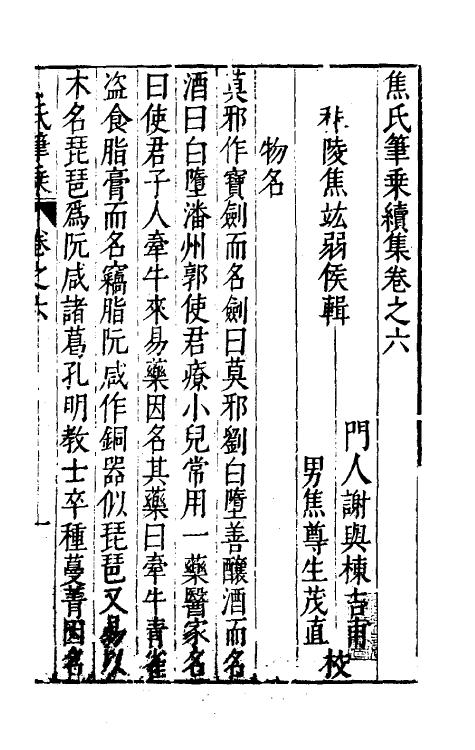 焦氏筆乗續集卷之六
秣陵焦竑弱侯輯
門人謝與棟吉甫
男焦尊生茂直
校
物名
莫邪作寶劍而名劍曰莫邪劉白墮善釀酒而名
酒曰白墮潘州郭使君療小兒常用一藥醫家名
曰使君子人牽牛來易藥因名其藥曰牽牛青雀
盗食脂膏而名竊脂阮咸作銅器似琵琶又易以
木名琵琶爲阮咸諸葛孔明教士卒種蔓菁因名
氏筆乗 卷之六 一